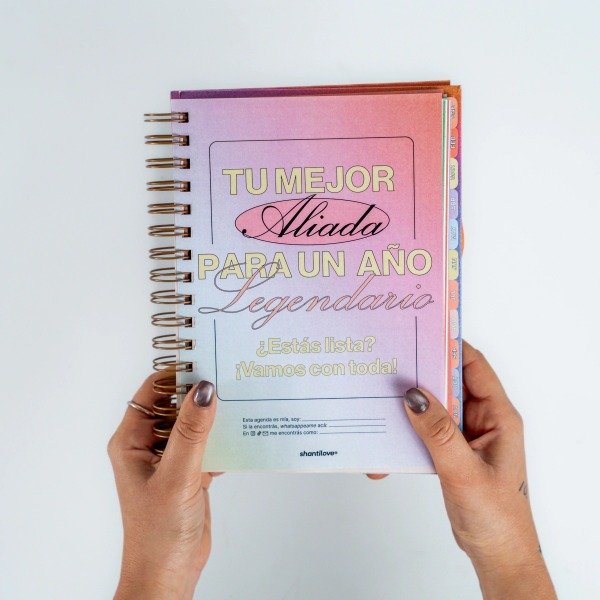 TU MEJOR
Aliada
PARA UN AÑO
Legendario
¿Estás lista?
¡Vamos con toda!
Esta agenda es mía, soy:
Si la encontrás, whatsappeame acá:
En me encontrás como:
shantilove®